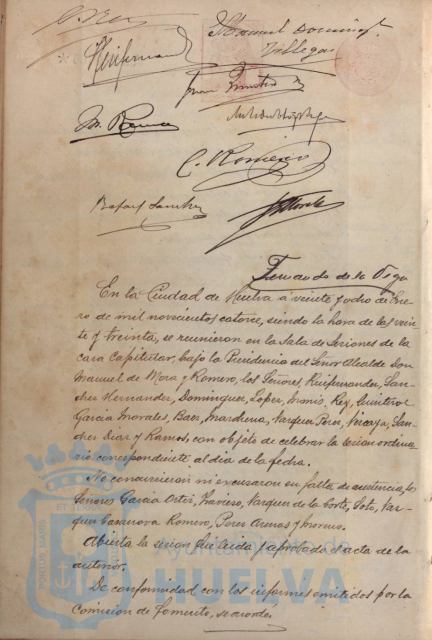 Manuel Domin
Villegas
Ruifernandez
M. Romero
C. Romero
Rafael Sanchez
G Morales
Fernando de la Vega
En la Ciudad de Huelva a veinte y ocho de Ene-
ro de mil novecientos catorce, siendo la hora de las vein-
te y treinta, se reunieron en la Sala de Sesiones de la
Casa Capitular, bajo la Presidencia del Señor Alcalde Don
Manuel de Mora y Romero, los Señores, Ruifernandez, San-
chez Hernandez, Dominguez, Lopez, Rey, Quintero
Garcia Morales, Baez, Marchena, Vazquez Perez, Vizcaya, San-
chez Diaz y Ramos, con objeto de celebrar la sesion ordina-
ria correspondiente al dia de la fecha.
No concurrieron ni excusaron su falta de asistencia, los
Señores Garcia Ortiz, Travieso, Vazquez de la Corte, Soto, Vaz-
quez Casanova Romero, Perez Arenas y Moreno.
Abierta la sesion fue leida y aprobada el acta de la
anterior.
De conformidad con los informes emitidos por la
Comision de Fomento, se acordó.
Ayuntamiento de
HUELVA
PORTUS MARIS ET TERRAE